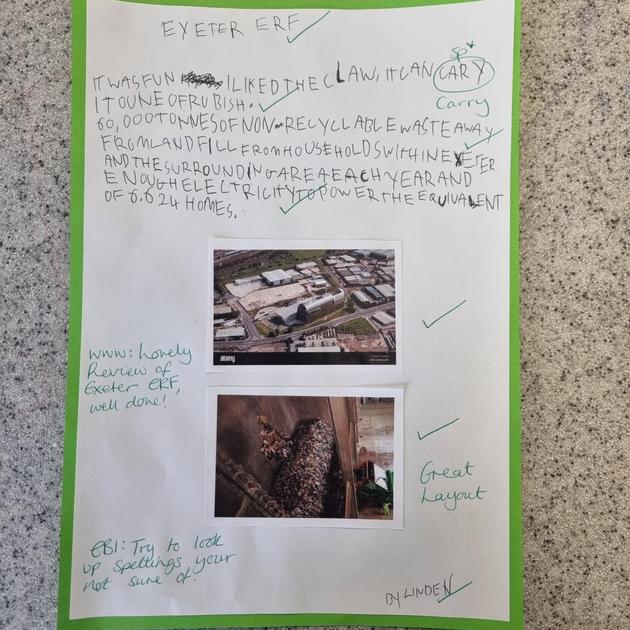 EXETER ERF
IT WAS FUN I LIKED THE CLAW, IT CAN CARY
sp*
Carry
1 TOUNE OF RUBISH.
60,000 TONNES OF NON-RECYCLABLE WASTE AWAY
FROM LANDFILL FROM HOUSEHOLDS WITHIN EXETER
AND THE SURROUNDING AREA EACH YEAR AND
ENOUGH ELECTRICITY TO POWER THE EQUIVALENT
OF 6.624 HOMES.
alamy
WWW: Lovely
Review of
Exeter ERF,
well done!
Great
Layout
EBI: Try to look
up spellings your
not sure of!
BY LINDEN